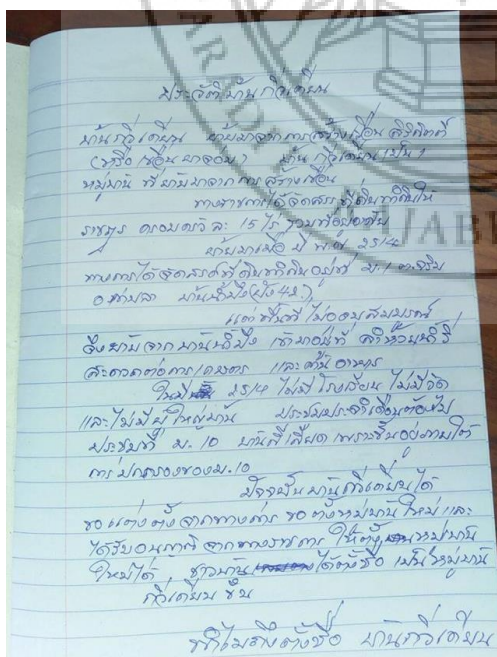 ประวัติบ้านกิ่วเคียน
บ้านกิ่วเคียน ย้ายมาจากการสร้างเขื่อนสิริกิติ์
(หรือเขื่อนผาซ่อม) บ้านกิ่วเคียนเป็น
หมู่บ้าน ที่ย้ายมาจากการสร้างเขื่อน
ทางราชการได้จัดสรร ที่ดินทำกินให้
ราษฎร ครอบครัวละ 15 ไร่ รวมที่อยู่อาศัย
ย้ายมาเมื่อ ปี พ.ศ. 2514
ทางการได้จัดสรรที่ดินทำกินอยู่ที่ ม.1 ต.จริม
อ.ท่าปลา
แต่พื้นที่ไม่อุดมสมบูรณ์
จึงย้ายจากบ้าน เข้ามาอยู่ที่
สะดวกต่อการ และค้าอาหาร
ในปี 2514 ไม่มีโรงเรียน ไม่มีวัด
และไม่มีผู้ใหญ่บ้าน ประชุมประจำเดือนต้องไป
ประชุมที่ ม.10 บ้านสีเสียด เพราะขึ้นอยู่ภายใต้
การปกครองของ ม.10
ปัจจุบันบ้านกิ่วเคียนได้
ขอแต่งตั้งจากทางการ ขอตั้งหมู่บ้านใหม่ และ
ได้รับอนุญาติจากทางราชการ ให้ตั้งหมู่บ้าน
ใหม่ได้ ชาวบ้าน ได้ตั้งชื่อ เป็นหมู่บ้าน
กิ่วเคียน ขึ้น
ทำไมถึงตั้งชื่อ บ้านกิ่วเคียน